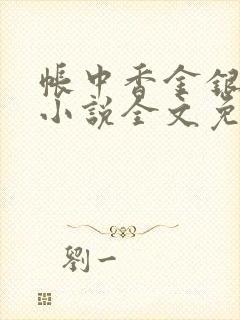 帳中香金銀
小說全文免
劉一